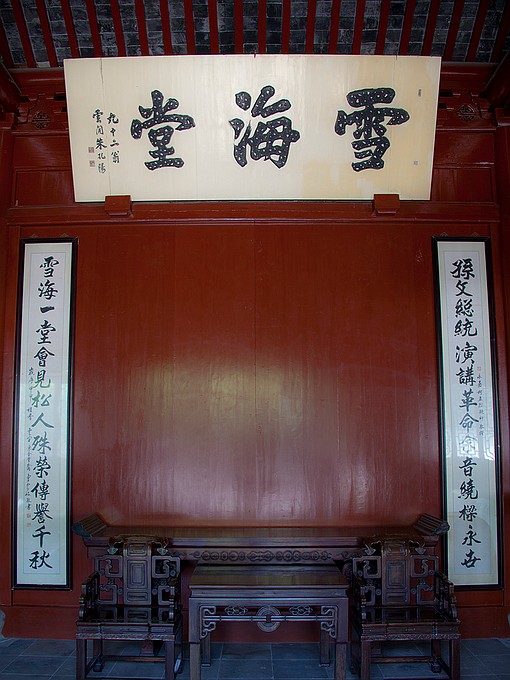 雪海堂
九十二翁
雲間朱孔陽
孫文總統演講革命音繞樑永世
雪海一堂會見松人殊榮傳譽千秋